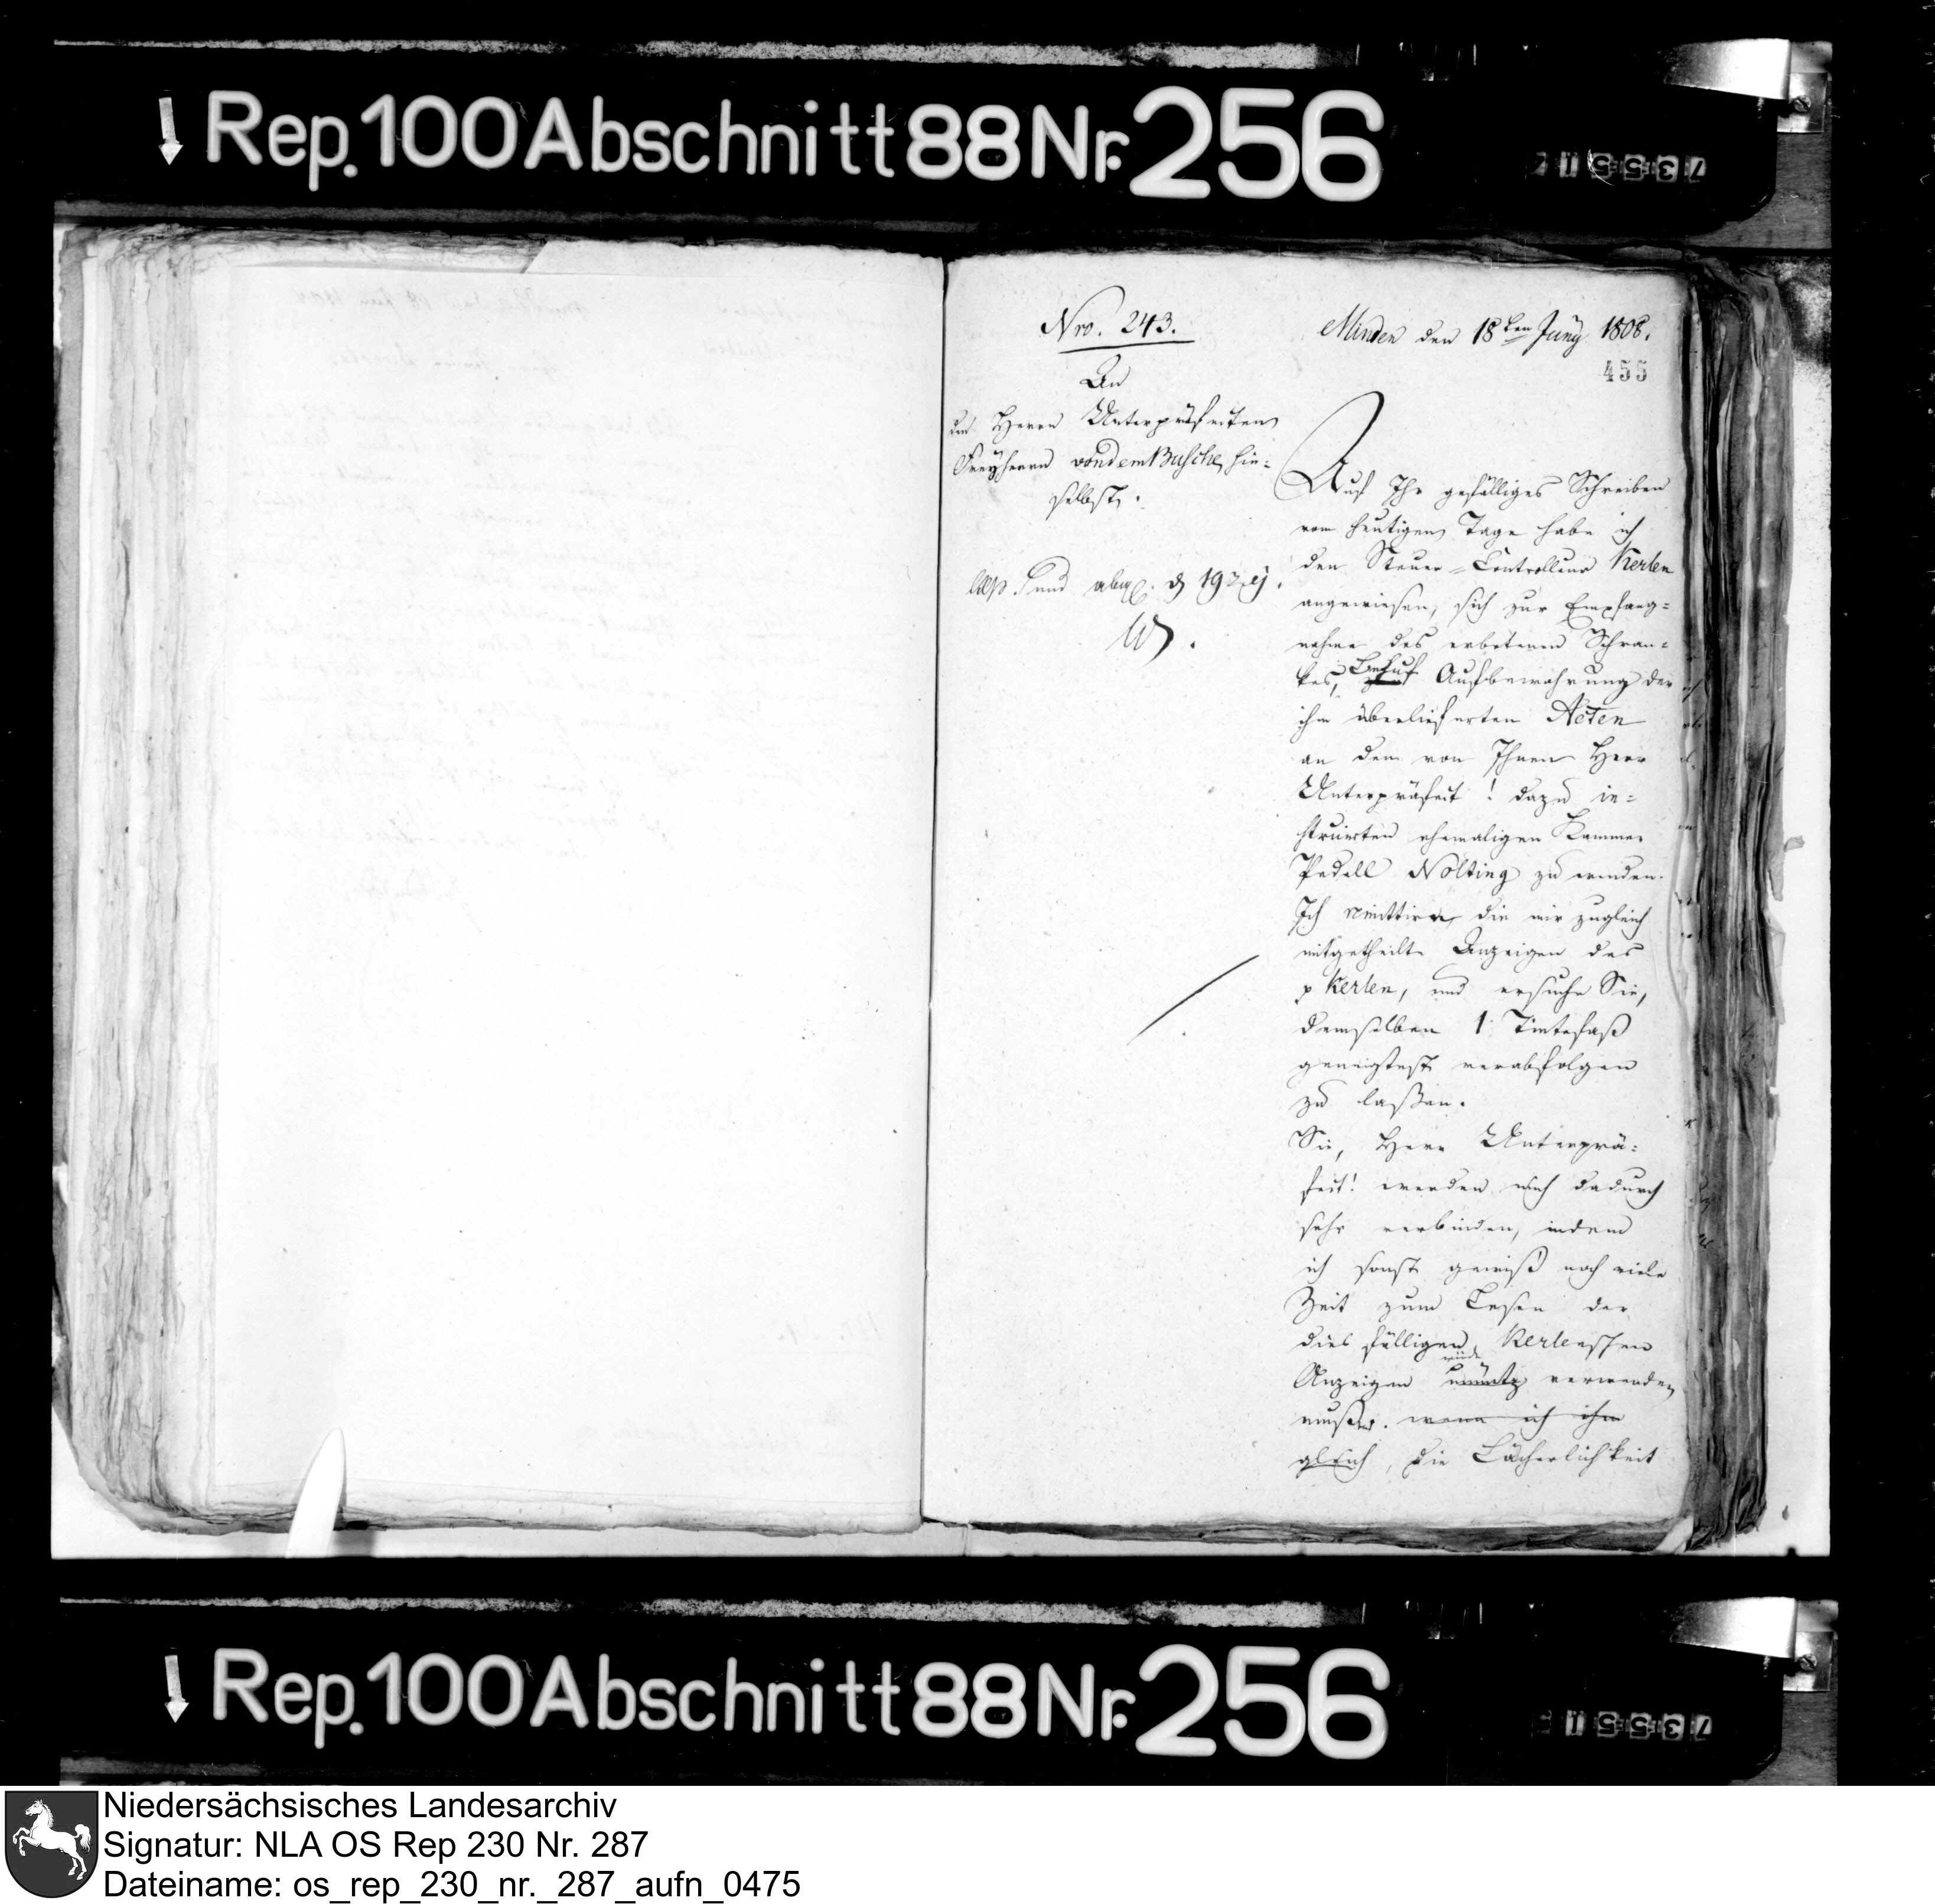 Rep. 100 Abschnitt 88 Nr. 256
Nro. 243.
An
den Herrn Unterpräfecten
Freyherrn von dem Busche, hie-
selbst.
exp. und abges. d 19t ej.
W.
Minden den 18ten Juny 1808.
455
Auf Ihr gefälliges Schreiben
vom heutigen Tage habe ich
den Steuer-Controlleur Kerlen
angewiesen, sich zur Empfang-
nahme des erbetenen Schran-
kes, Behuf Aufbewahrung der
ihm überlieferten Acten
an dem von Ihnen Herr
Unterpräfect! dazu in-
struirten ehemaligen Kammer
Pedell Nolting zu wenden.
Ich remittire die mir zugleich
mitgetheilte Anzeigen des
p Kerlen, und ersuche Sie,
demselben 1 Tintefaß
geneigtest verabfolgen
zu laßen.
Sie, Herr Unterprä-
fect! werden mich dadurch
sehr verbinden, indem
ich sonst gewiß noch viele
Zeit zum Lesen der
dies fälligen Kerlenschen
Anzeigen unnütz verwenden
müßte. wenn ich ihm
gleich, die Lächerlichkeit
Rep. 100 Abschnitt 88 Nr. 256
Niedersächsisches Landesarchiv
Signatur: NLA OS Rep 230 Nr. 287
Dateiname: os_rep_230_nr._287_aufn_0475